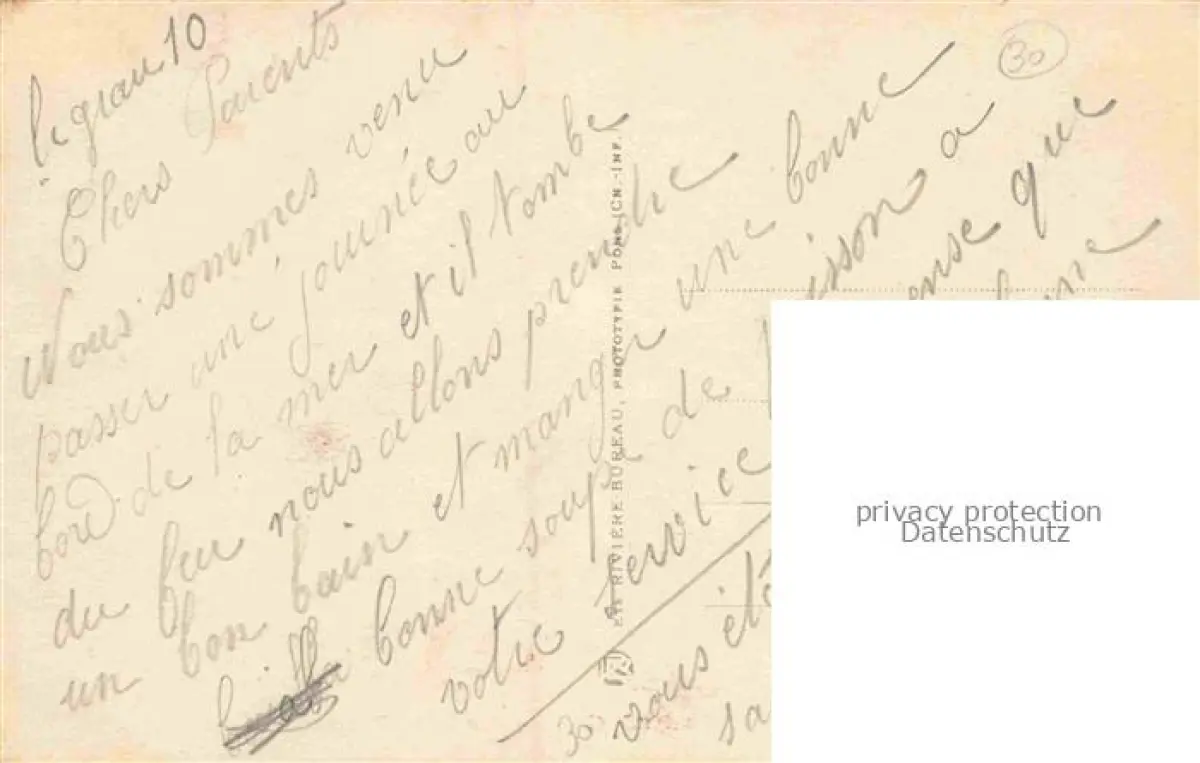 le grau 10
Chers Parents
Nous sommes venu
passer une journée au
bord de la mer et il tombe
du feu nous allons prendre
un bon bain et manger une bonne
bonne soupe de isson a
votre service ense que
vous
sa
30
30
ETS RIVIÈRE BUREAU, PHOTOTYPIE PONS (CH.-INF.
privacy protection
Datenschutz